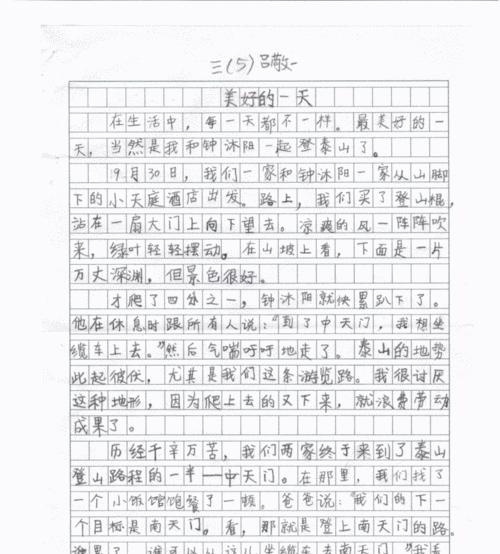 三(5)吕敬一
美好的一天
在生活中，每一天都不一样。最美好的一
天，当然是我和钟沐阳一起登泰山了。
9月30日，我们一家和钟沐阳一家从山脚
下的小天庭酒店出发。路上，我们买了登山棍，
站在一扇大门上向下望去。凉爽的风一阵阵吹
来，绿叶轻轻摆动。在山坡上看，下面是一片
万丈深渊，但景色很好。
才爬了四分之一，钟沐阳就快累趴下了。
他在休息时跟所有人说：“到了中天门，我想坐
缆车上去。”然后气喘吁吁地走了。泰山的地势
此起彼伏，尤其是我们这条游览路。我很讨厌
这种地形，因为爬上去的又下来，就浪费劳动
成果了。
历经千辛万苦，我们两家终于来到了泰山
登山路程的一半——中天门。在那里，我们找了
一个小饭馆饱餐了一顿。爸爸说：“我们的下一
个目标是南天门。看，那就是登上南天门的路。
谁累了，谁可以从这儿坐缆车去南天门。”我活